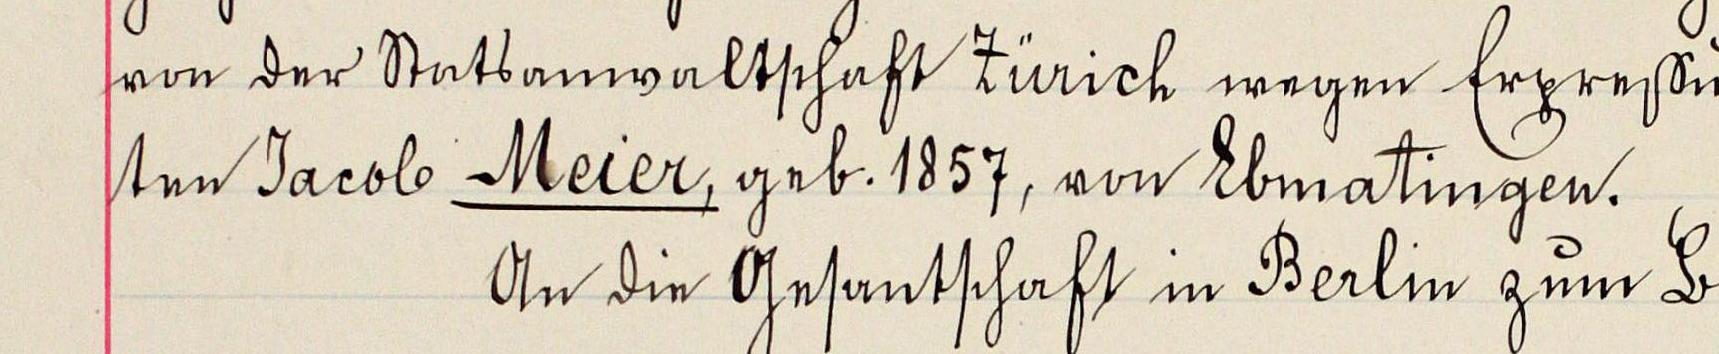 von der Statsanwaltschaft Zürich wegen Erpressu
ten Jacob Meier, geb. 1857, von Ebmatingen.
An die Gesantschaft in Berlin zum B